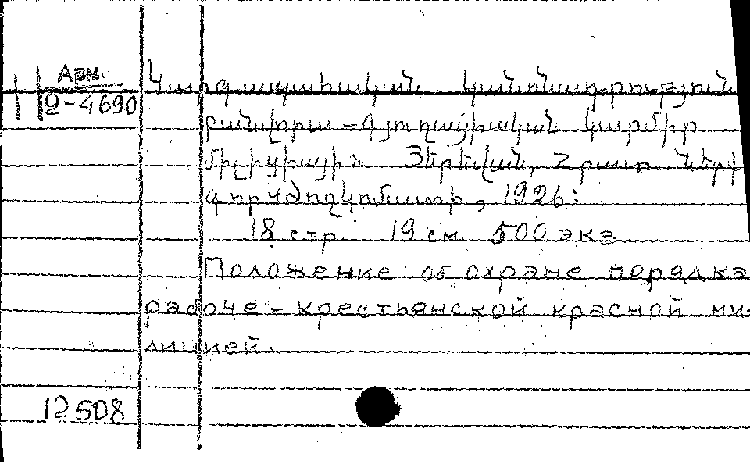 Арм.
Չ-4690
Կարգապահական կանոնադրություն
բանվորա-գյուղացիական կարմիր
միլիցիայի. Յերեվան, Հրատ. Ներք
գործժողկոմատի, 1926:
18 стр. 19 см. 500 экз
Положение об охране порядка
рабоче-крестьянской красной ми-
лицией.
12508